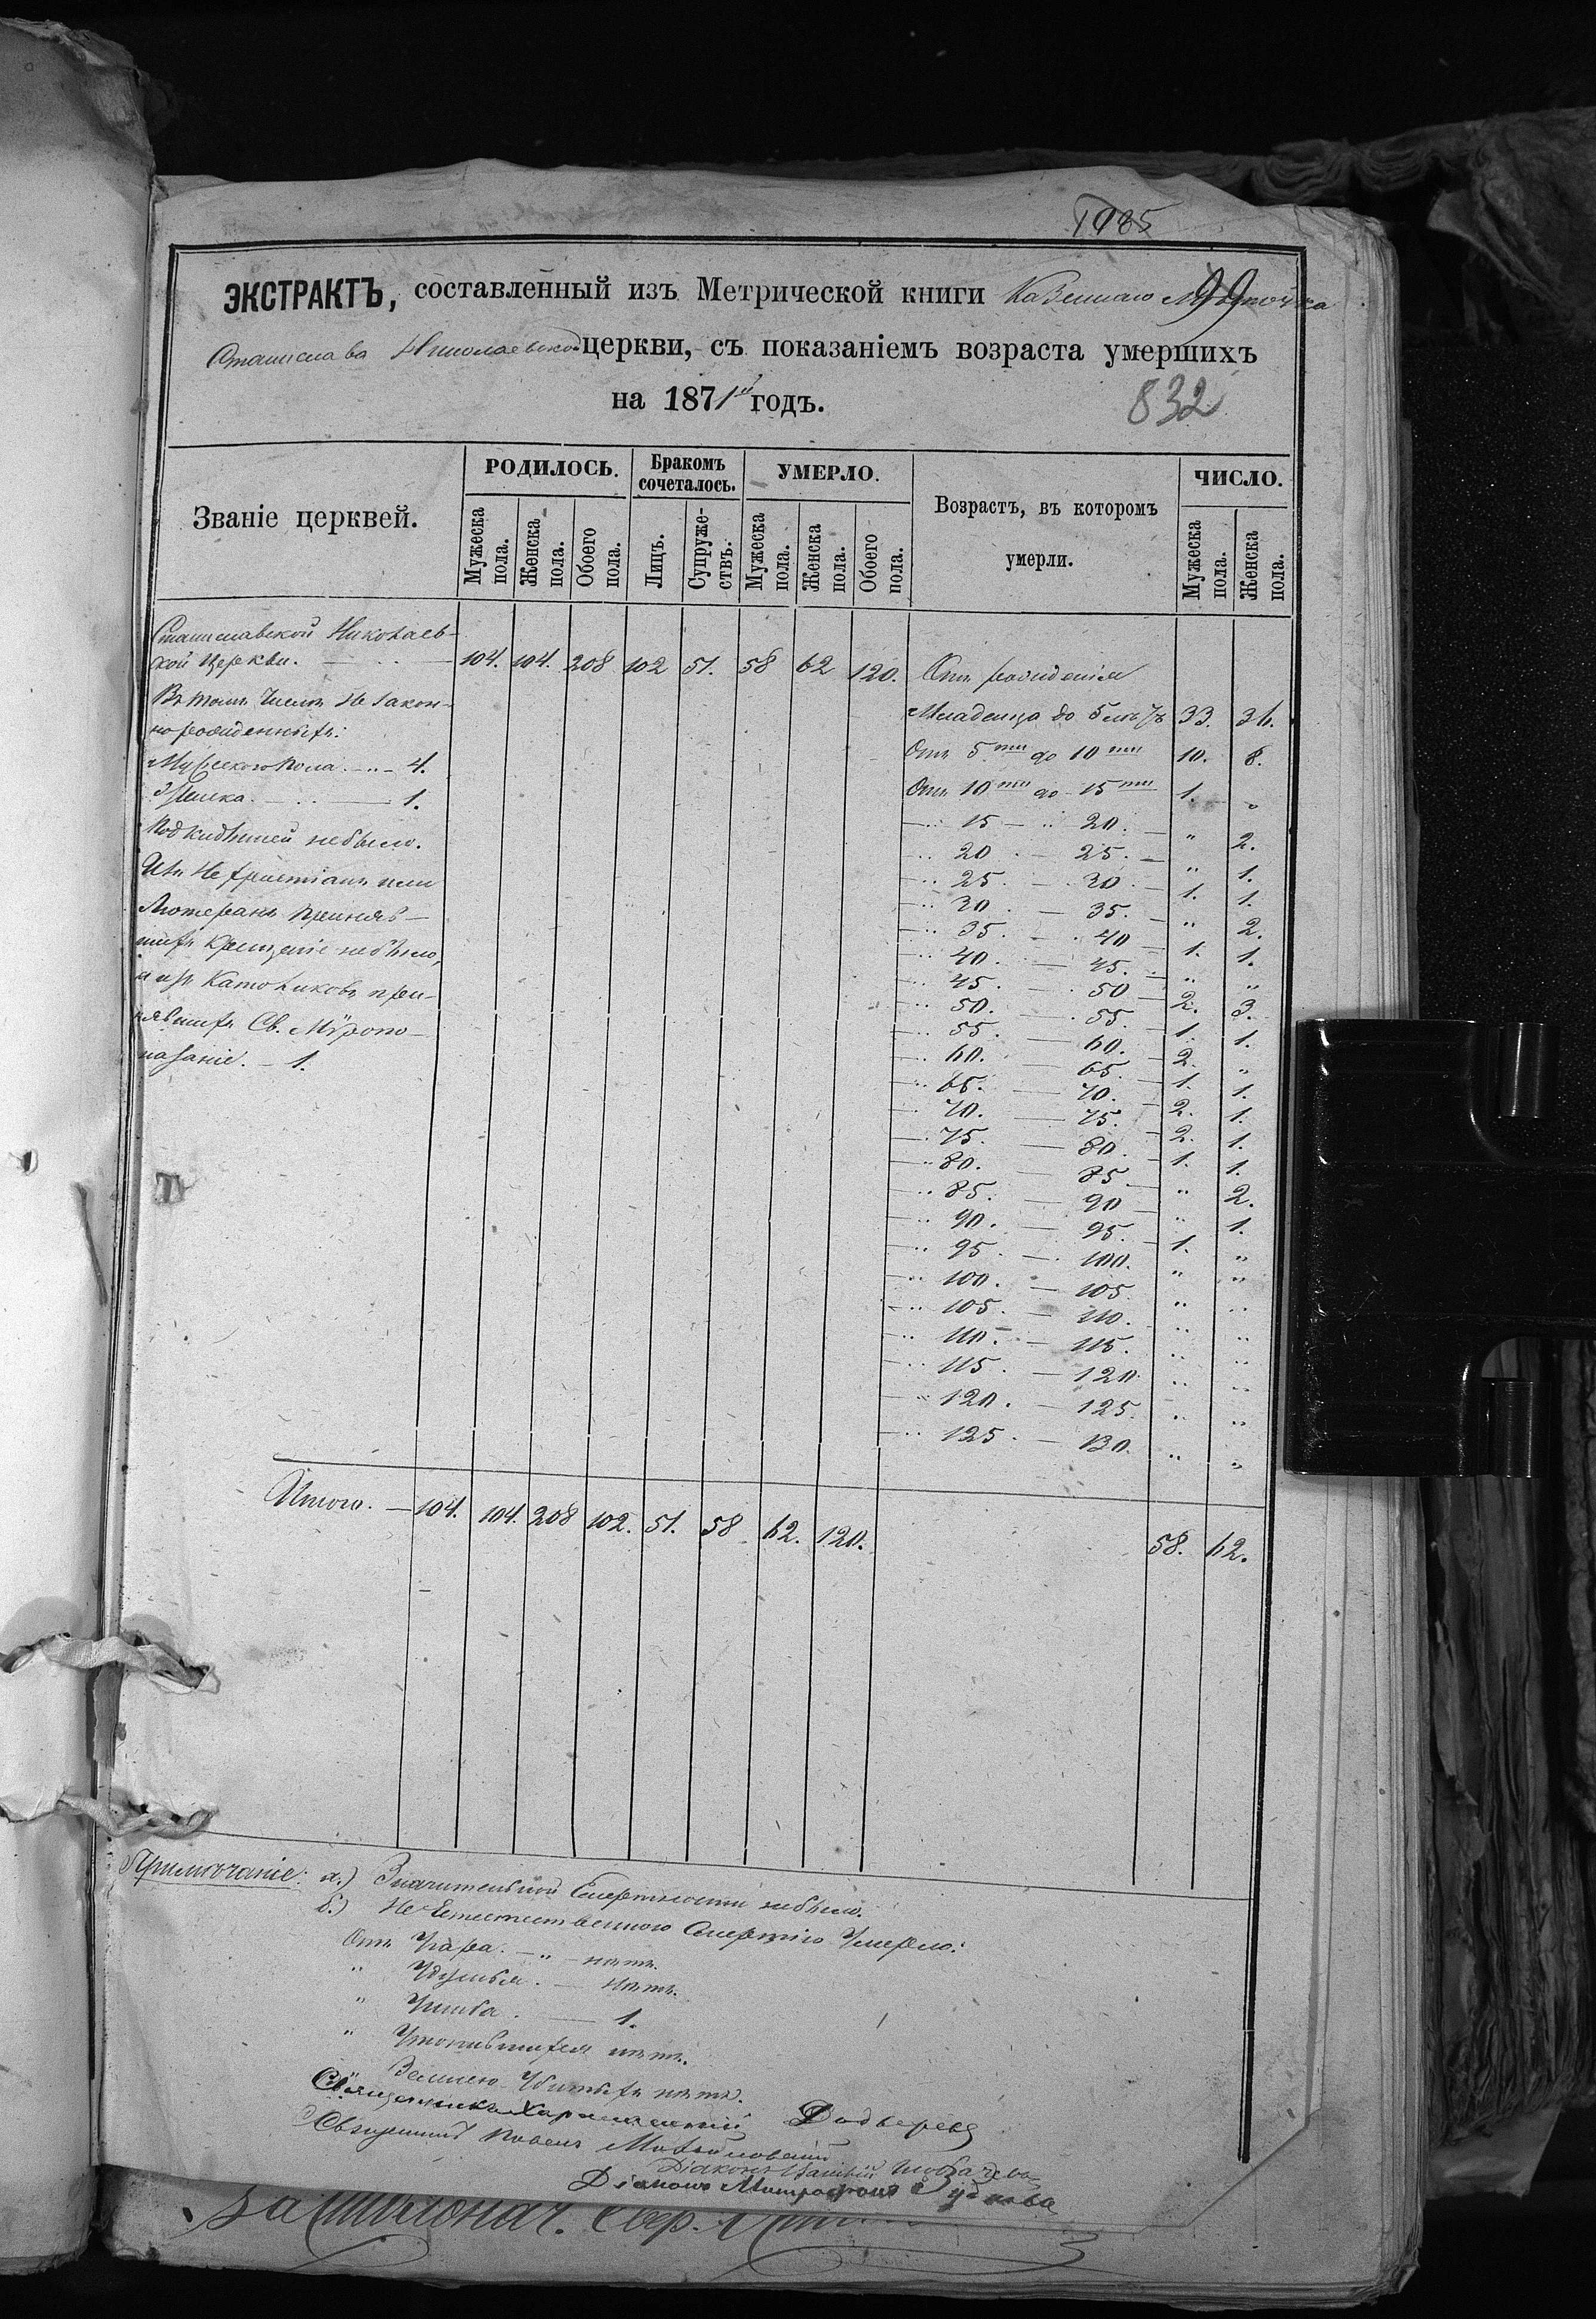 1985
ЭКСТРАКТЪ, составленный изъ Метрической книги Казеннаго Мѣстечка
99
Станислава Николаевской церкви, съ показаніемъ возраста умершихъ
на 1871й годъ.
832
Званіе церквей.
РОДИЛОСЬ.
Бракомъ сочеталось.
УМЕРЛО.
Возрастъ, въ которомъ умерли.
ЧИСЛО.
Мужеска пола. Женска пола. Обоего пола. Лицъ. Супружествъ. Мужеска пола. Женска пола. Обоего пола. Мужеска пола. Женска пола.
Станиславской Николаев-
ской Церкви. 104. 104. 208 102 51. 58 62 120.
Въ томъ Числѣ Незакон-
норожденныхъ:
Мужеского Пола. 4.
Женска. 1.
Подкидышей небыло.
Изъ Нехристіанъ или
Лютеранъ Приняв-
шихъ Крещеніе небыло,
а изъ Католиковъ при-
нявшихъ Св. Мѵропо-
мазаніе. – 1.
Отъ рожденія
Младенца до 5 лѣтъ 33. 34.
Отъ 5ти до 10ти 10. 8.
Отъ 10ти до 15ти 1. "
" 15 – " 20. – " 2.
" 20 . – 25. – " 1.
" 25. – 30. – 1. 1.
" 30 . – 35. – " 2.
" 35. – 40 – 1. 1.
" 40. – 45. – " "
" 45. – 50 – 2. 3.
" 50. – 55. – 1. 1.
" 55. – 60. – 2. "
" 60. – 65. – 1. 1.
" 65. – 70. – 2. 1.
" 70. – 75. – 2. 1.
" 75. – 80. – 1. 1.
" 80. – 85. – " 2.
" 85. – 90 – " 1.
" 90. – 95. – 1. "
" 95. – 100. " "
" 100. – 105 " "
" 105. – 110. " "
" 110. – 115. " "
" 115. – 120 " "
" 120. – 125. " "
" 125. – 130. " "
Итого. – 104. 104. 208 102. 51. 58 62. 120. 58. 62.
Примѣчаніе: а.) Значительной Смертности небыло.
б.) Не Естественною Смертію Умерло:
Отъ Угара. – " – нѣтъ.
" Удушья. – нѣтъ.
" Ушиба. – 1.
" Утопившихся нѣтъ.
" Землею Убитыхъ нѣтъ.
Священникъ Харлампій
Священникъ Павелъ
Діаконъ
Діаконъ Митрофанъ